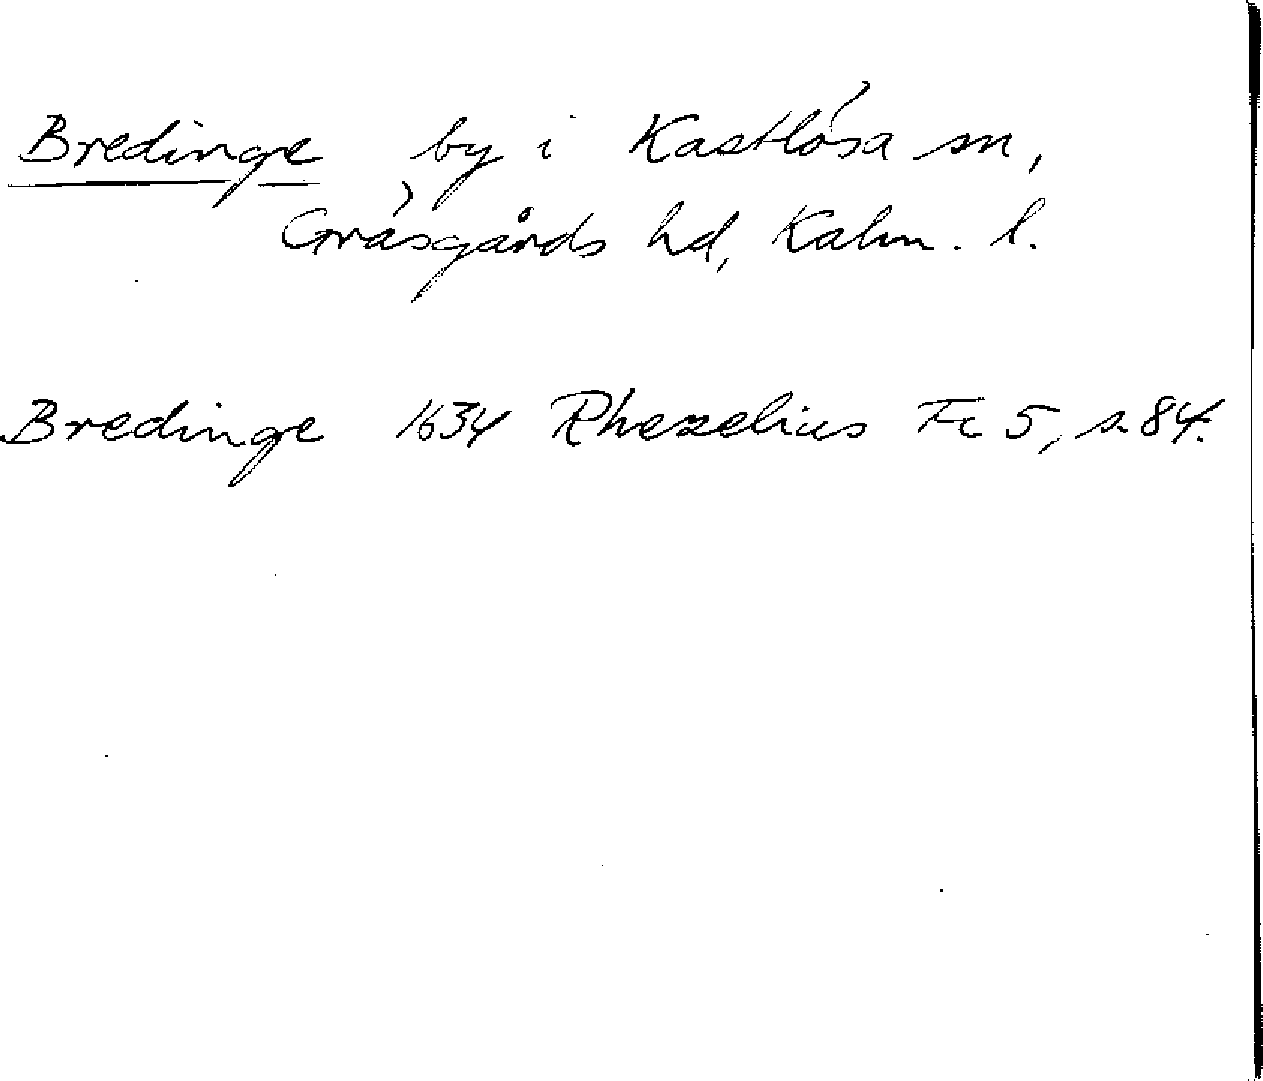 Bredinge by i Kastlösa sn,
Gräsgårds hd, Kalm. l.
Bredinge 1634 Rhezelius Fc 5, s. 84.